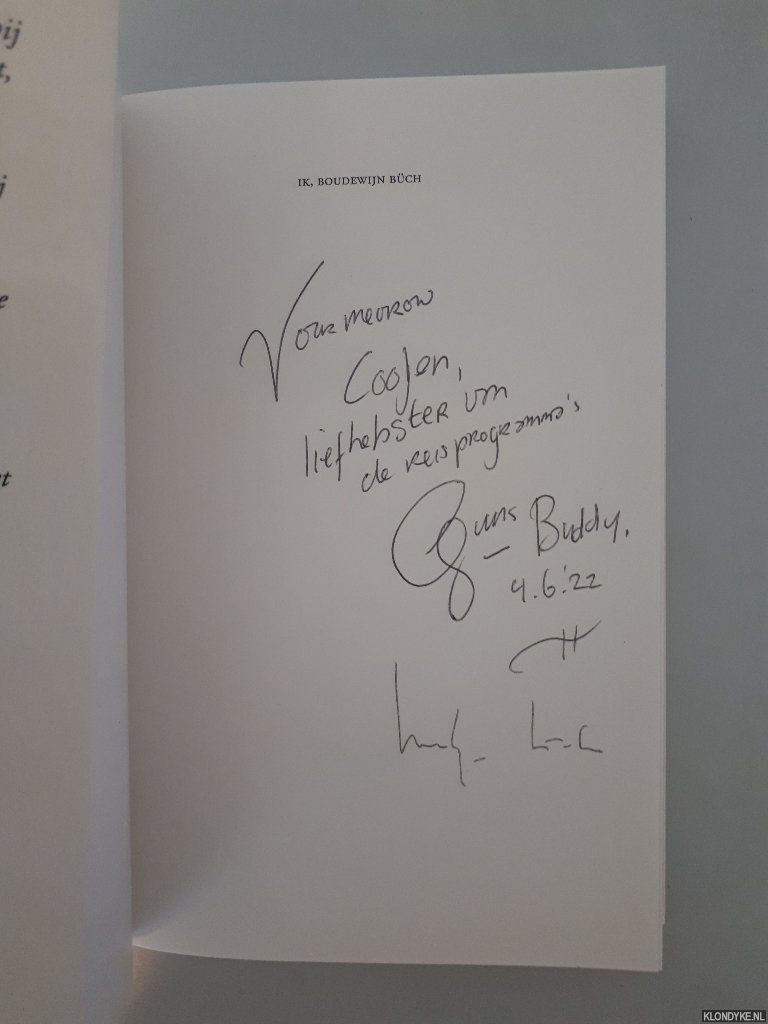 ij
t,
j
e
t
IK, BOUDEWIJN BÜCH
Voor mevrouw
Coolen,
liefhebster van
de reisprogramma's
Buddy.
4.6.'22
KLONDYKE.NL